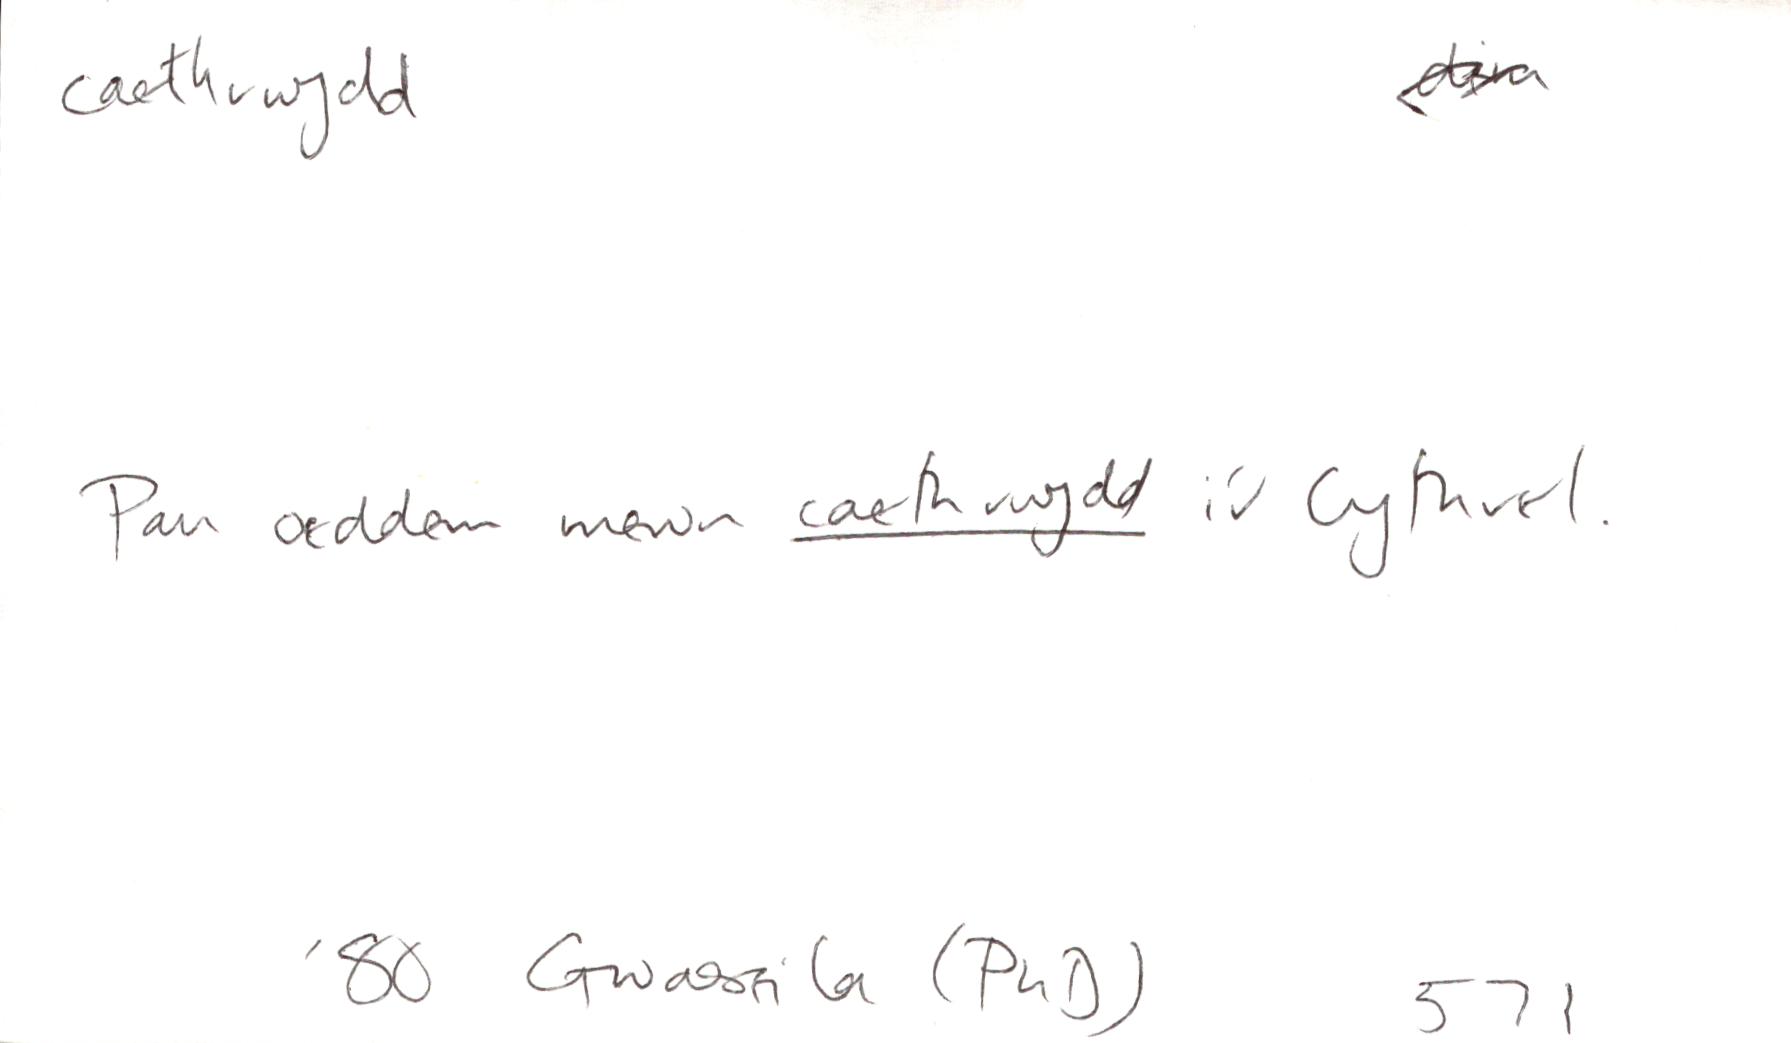 caethrwydd
Pan oeddem mewn caethrwydd i'r Cythrel.
'80 Gwassila (PhD) 571